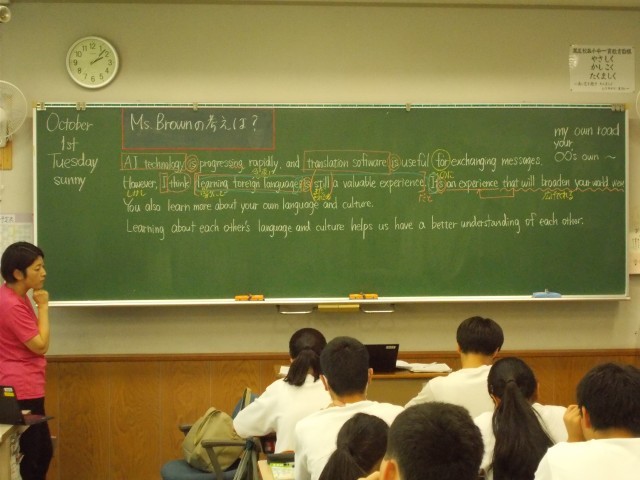 October
1st
Tuesday
sunny
Ms. Brownの考えは？
AI technology is progressing rapidly, and translation software is useful for exchanging messages.
However, I think learning foreign languages is still a valuable experience. It is an experience that will broaden your world view.
You also learn more about your own language and culture.
Learning about each other's language and culture helps us have a better understanding of each other.
my own road
your
○○'s own ～
やさしく
かしこく
たくましく